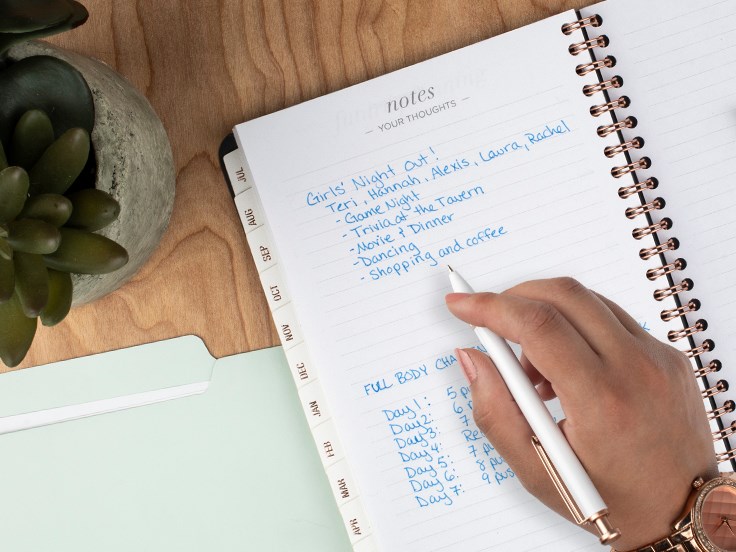 notes
YOUR THOUGHTS
Girls' Night Out!
Teri, Hannah, Alexis, Laura, Rachel
- Game Night
- Trivia at the Tavern
- Movie & Dinner
- Dancing
- Shopping and coffee
FULL BODY
Day 1: 5
Day 2: 6
Day 3: 7
Day 4:
Day 5: 7
Day 6: 8
Day 7: 9
JUL
AUG
SEP
OCT
NOV
DEC
JAN
FEB
MAR
APR